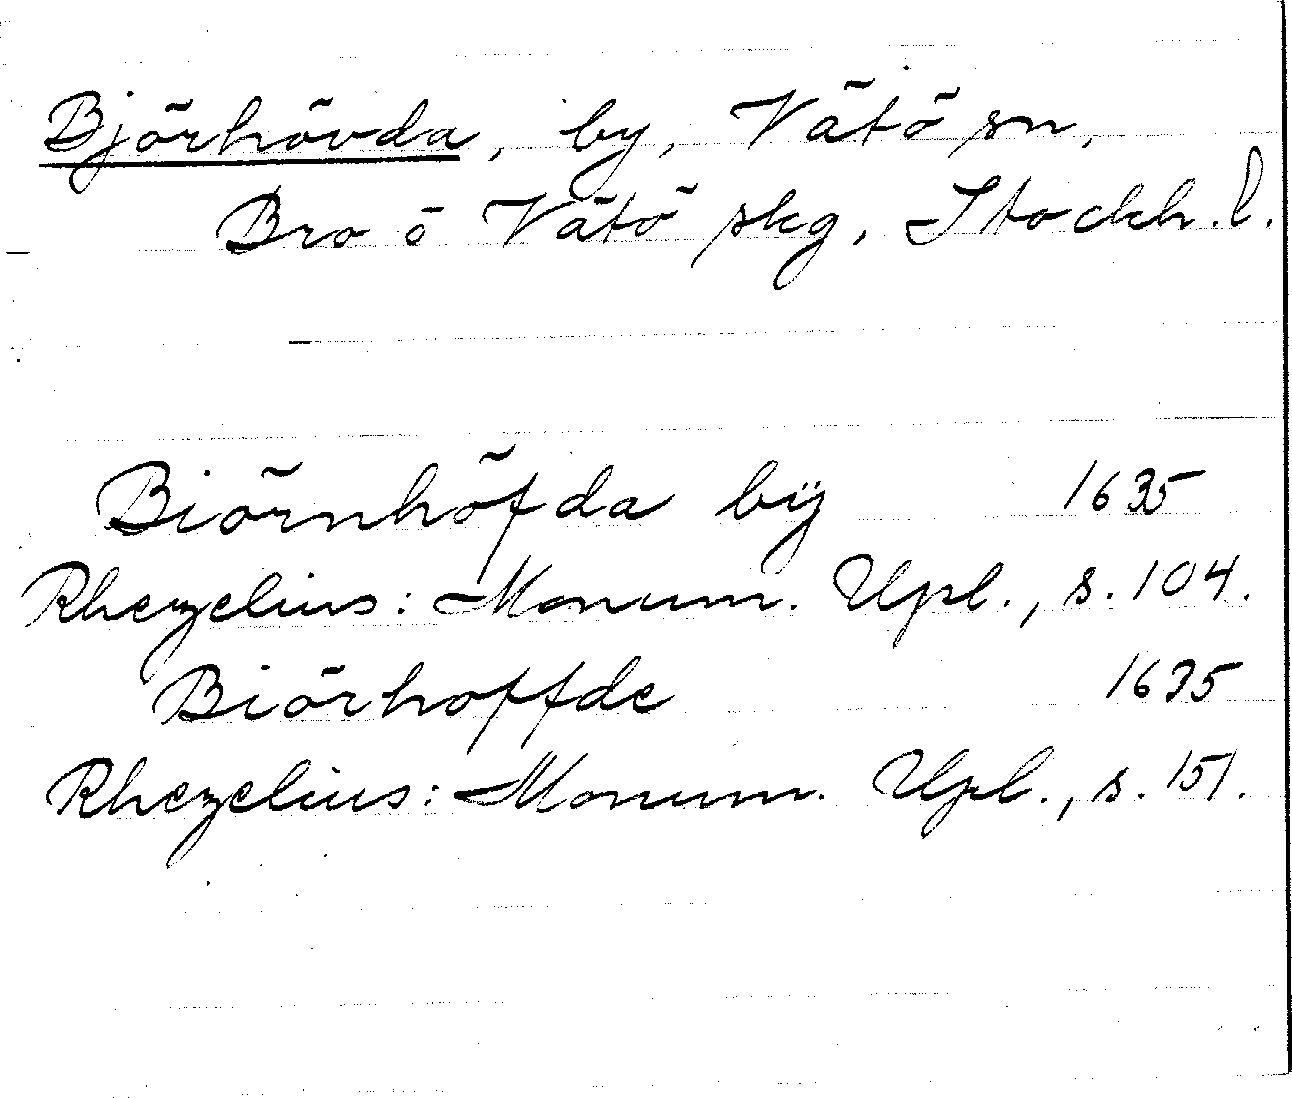 Björhövda, by, Vätö sn,
Bro o Vätö skg, Stockh. l.
Biörnhöfda bÿ 1635
Rhezelius: Monum. Upl., s. 104.
Biörhoffde 1635
Rhezelius: Monum. Upl., s. 151.